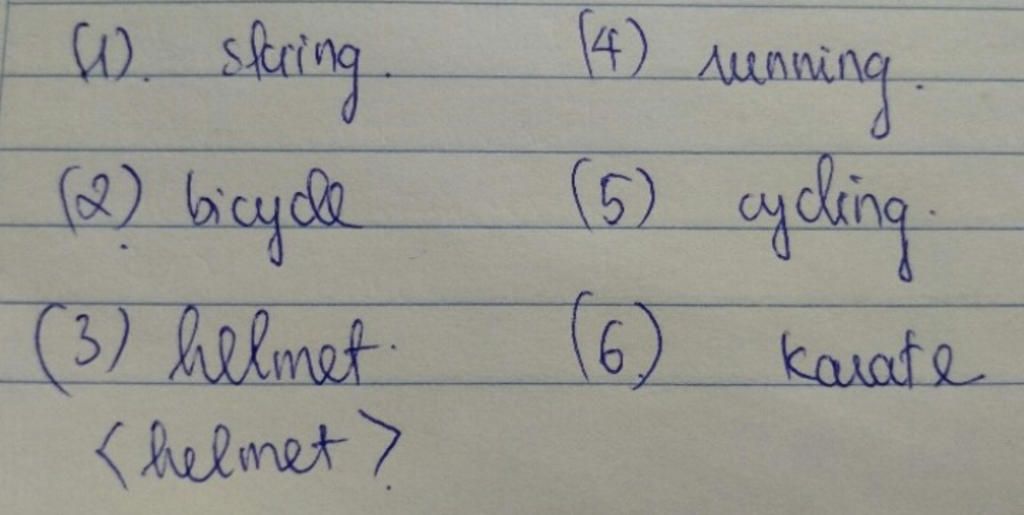 (1). skiing. (4) running.
(2) bicycle (5) cycling.
(3) helmet. (6) karate
<helmet>